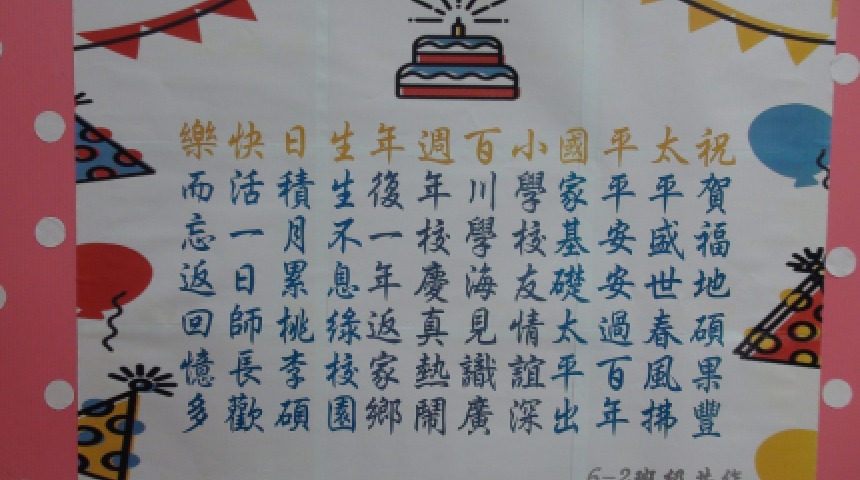 祝賀福地碩果豐
太平盛世春風拂
平平安安過百年
國家基礎太平出
小學校友情誼深
百川學海見識廣
週年校慶真熱鬧
年後一年返家鄉
生生不息綠校園
日積月累桃李碩
快活一日師長歡
樂而忘返回憶多
6-2班